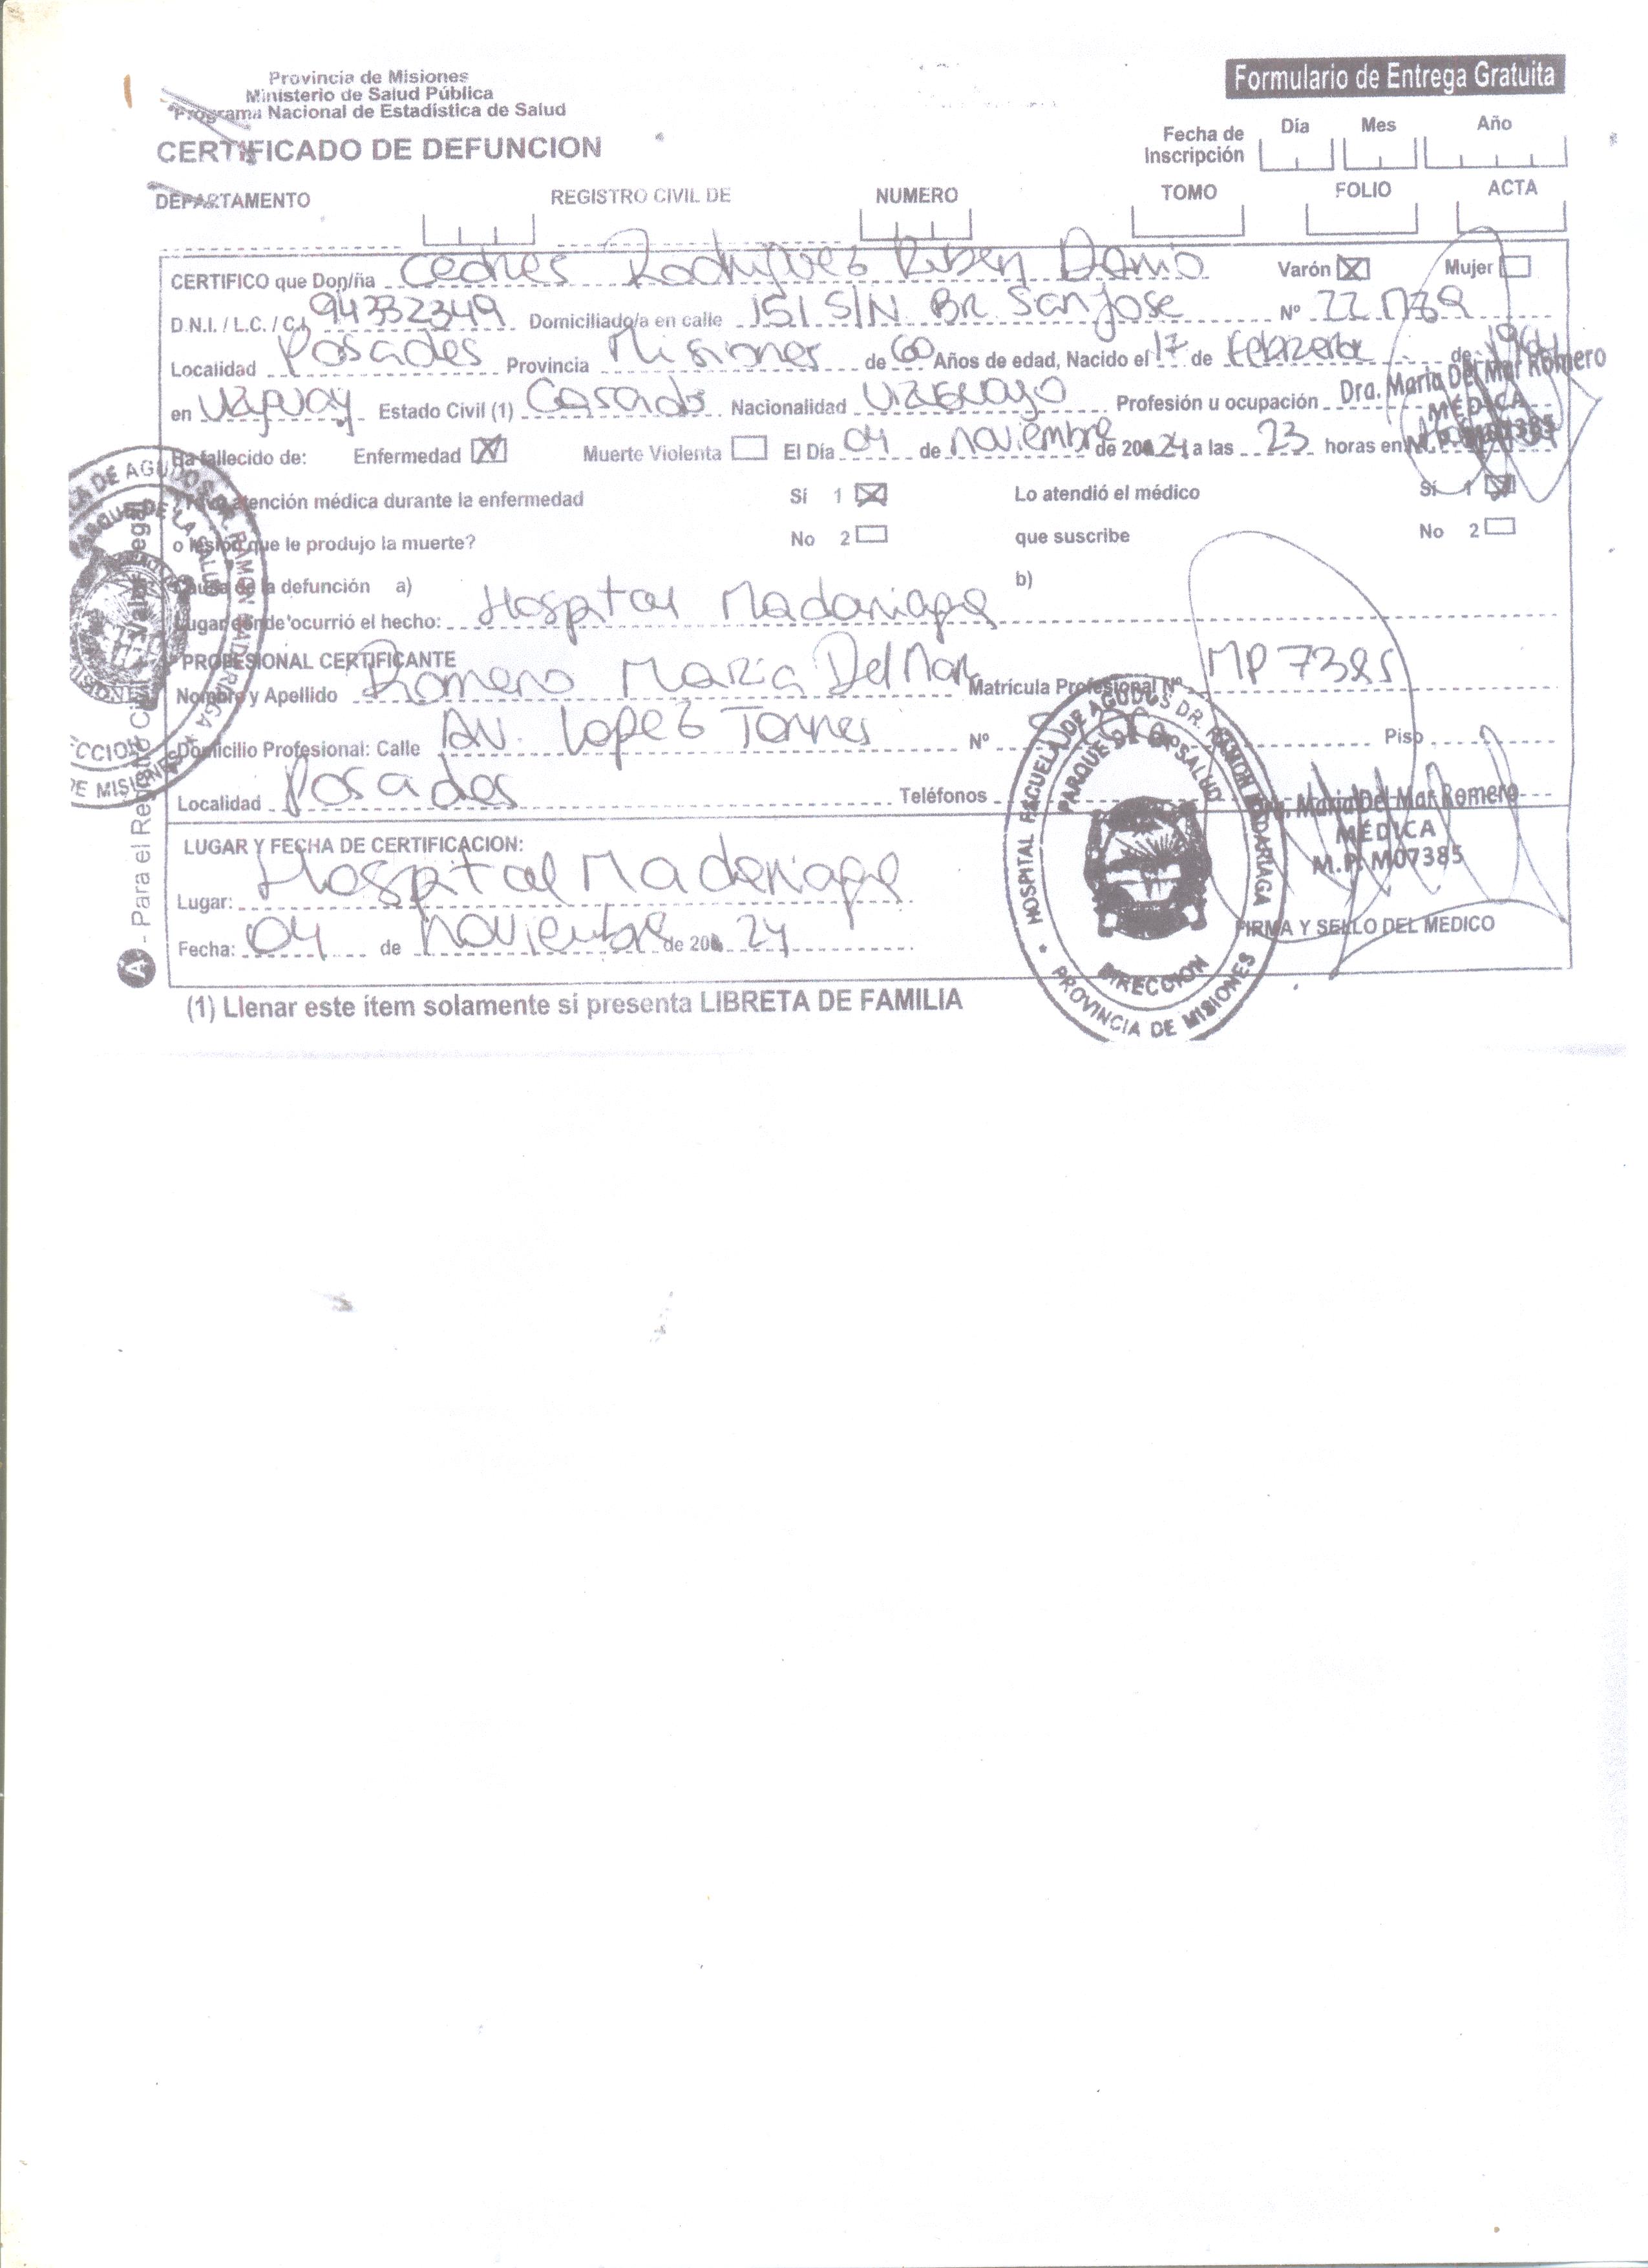 Provincia de Misiones
Ministerio de Salud Pública
Programa Nacional de Estadística de Salud
CERTIFICADO DE DEFUNCION
Formulario de Entrega Gratuita
Fecha de Inscripción Día Mes Año
DEPARTAMENTO REGISTRO CIVIL DE NUMERO TOMO FOLIO ACTA
CERTIFICO que Don/ña Cedres Rodriguez Ruben Dario Varón X Mujer
D.N.I. / L.C. / C.I. 94332349 Domiciliado/a en calle 151 S/N BR. San Jose Nº
Localidad Posadas Provincia Misiones de 60 Años de edad, Nacido el 17 de de 1964
en Estado Civil (1) Casado Nacionalidad Profesión u ocupación
Dra. Maria Del Mar Romero
MÉDICA
Ha fallecido de: Enfermedad X Muerte Violenta El Día 04 de noviembre de 200 24 a las 23 horas en
Tuvo atención médica durante la enfermedad Sí 1 X Lo atendió el médico Sí 1 X
o lesión que le produjo la muerte? No 2 que suscribe No 2
Causa de la defunción a) b)
Lugar donde ocurrió el hecho: Hospital Madariaga
PROFESIONAL CERTIFICANTE
Nombre y Apellido Romero Maria Del Mar Matrícula Profesional Nº MP 7385
Domicilio Profesional: Calle AV. Lopez Torres Nº Piso
Localidad Posadas Teléfonos
Dra. Maria Del Mar Romero
MÉDICA
M.P. M07385
FIRMA Y SELLO DEL MEDICO
LUGAR Y FECHA DE CERTIFICACION:
Lugar: Hospital Madariaga
Fecha: 04 de noviembre de 200 24
(1) Llenar este ítem solamente si presenta LIBRETA DE FAMILIA
HOSPITAL ESCUELA DE AGUDOS DR. RAMON MADARIAGA
PARQUE DE LA SALUD
DIRECCION
PROVINCIA DE MISIONES
A - Para el Registro Civil - Valor Legal